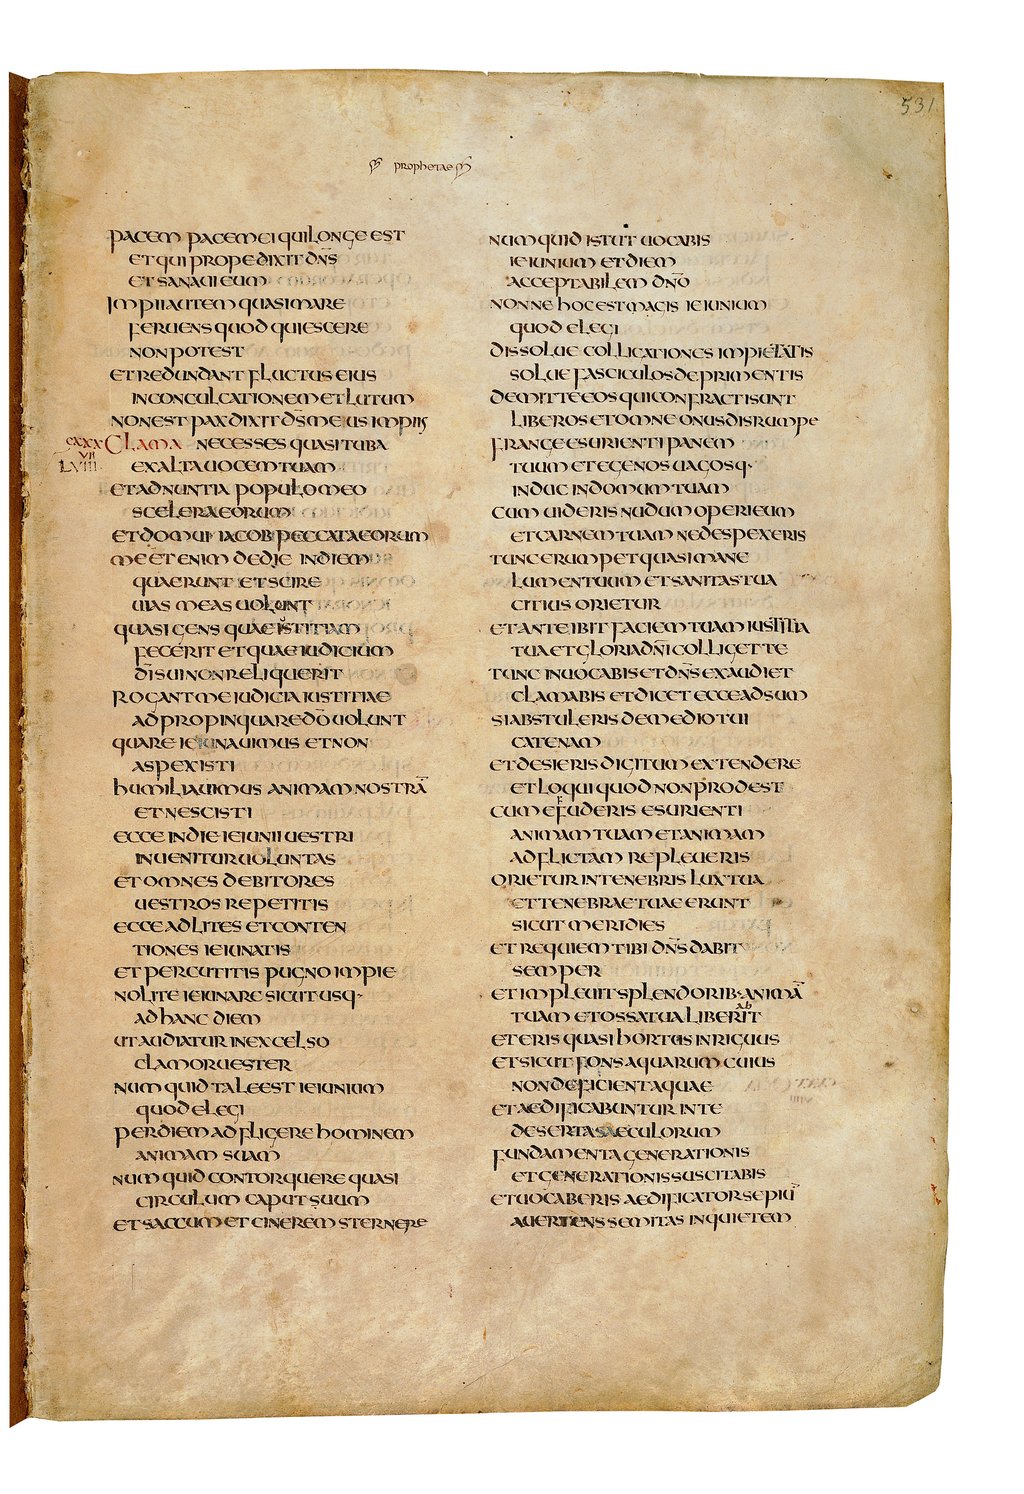 531
prophetae
PACEM PACEM EI QUI LONGE EST
ET QUI PROPE DIXIT DN̄S
ET SANAUI EUM
IMPII AUTEM QUASI MARE
FERUENS QUOD QUIESCERE
NON POTEST
ET REDUNDANT FLUCTUS EIUS
IN CONCULCATIONEM ET LUTUM
NON EST PAX DIXIT DS̄ MEUS IMPIIS
CXXXVII CLAMA NE CESSES QUASI TUBA
LVIII EXALTA UOCEM TUAM
ET ADNUNTIA POPULO MEO
SCELERA EORUM
ET DOMUI IACOB PECCATA EORUM
ME ETENIM DE DIE IN DIEM
QUAERUNT ET SCIRE
UIAS MEAS UOLUNT
QUASI GENS QUAE IUSTITIAM
FECERIT ET QUAE IUDICIUM
DĪ SUI NON RELIQUERIT
ROGANT ME IUDICIA IUSTITIAE
ADPROPINQUARE DŌ UOLUNT
QUARE IEIUNAUIMUS ET NON
ASPEXISTI
HUMILIAUIMUS ANIMAM NOSTRĀ
ET NESCISTI
ECCE IN DIE IEIUNII UESTRI
INUENITUR UOLUNTAS
ET OMNES DEBITORES
UESTROS REPETITIS
ECCE AD LITES ET CONTEN
TIONES IEIUNATIS
ET PERCUTITIS PUGNO IMPIE
NOLITE IEIUNARE SICUT USQ·
AD HANC DIEM
UT AUDIATUR IN EXCELSO
CLAMOR UESTER
NUMQUID TALE EST IEIUNIUM
QUOD ELEGI
PER DIEM ADFLIGERE HOMINEM
ANIMAM SUAM
NUMQUID CONTORQUERE QUASI
CIRCULUM CAPUT SUUM
ET SACCUM ET CINEREM STERNERE
NUMQUID ISTUT UOCABIS
IEIUNIUM ET DIEM
ACCEPTABILEM DN̄O
NONNE HOC EST MAGIS IEIUNIUM
QUOD ELEGI
DISSOLUE COLLIGATIONES IMPIETATIS
SOLUE FASCICULOS DEPRIMENTIS
DEMITTE EOS QUI CONFRACTI SUNT
LIBEROS ET OMNE ONUS DISRUMPE
FRANGE ESURIENTI PANEM
TUUM ET EGENOS UAGOSQ·
INDUC IN DOMUM TUAM
CUM UIDERIS NUDUM OPERI EUM
ET CARNEM TUAM NE DESPEXERIS
TUNC ERUMPET QUASI MANE
LUMEN TUUM ET SANITAS TUA
CITIUS ORIETUR
ET ANTEIBIT FACIEM TUAM IUSTITIA
TUA ET GLORIA DN̄I COLLIGET TE
TUNC INUOCABIS ET DN̄S EXAUDIET
CLAMABIS ET DICET ECCE ADSUM
SI ABSTULERIS DE MEDIO TUI
CATENAM
ET DESIERIS DIGITUM EXTENDERE
ET LOQUI QUOD NON PRODEST
CUM EFFUDERIS ESURIENTI
ANIMAM TUAM ET ANIMAM
ADFLICTAM REPLEUERIS
ORIETUR IN TENEBRIS LUX TUA
ET TENEBRAE TUAE ERUNT
SICUT MERIDIES
ET REQUIEM TIBI DN̄S DABIT
SEMPER
ET IMPLEUIT SPLENDORIB· ANIMĀ
TUAM ET OSSA TUA LIBERABIT
ET ERIS QUASI HORTUS INRIGUUS
ET SICUT FONS AQUARUM CUIUS
NON DEFICIENT AQUAE
ET AEDIFICABUNTUR IN TE
DESERTA SAECULORUM
FUNDAMENTA GENERATIONIS
ET GENERATIONIS SUSCITABIS
ET UOCABERIS AEDIFICATOR SEPIŪ
AUERTENS SEMITAS IN QUIETEM